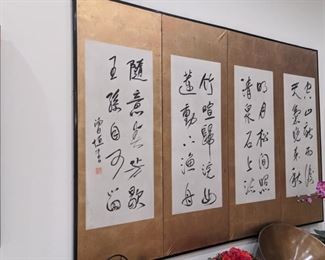 空山新雨後
天氣晚來秋
明月松間照
清泉石上流
竹喧歸浣女
蓮動下漁舟
隨意春芳歇
王孫自可留